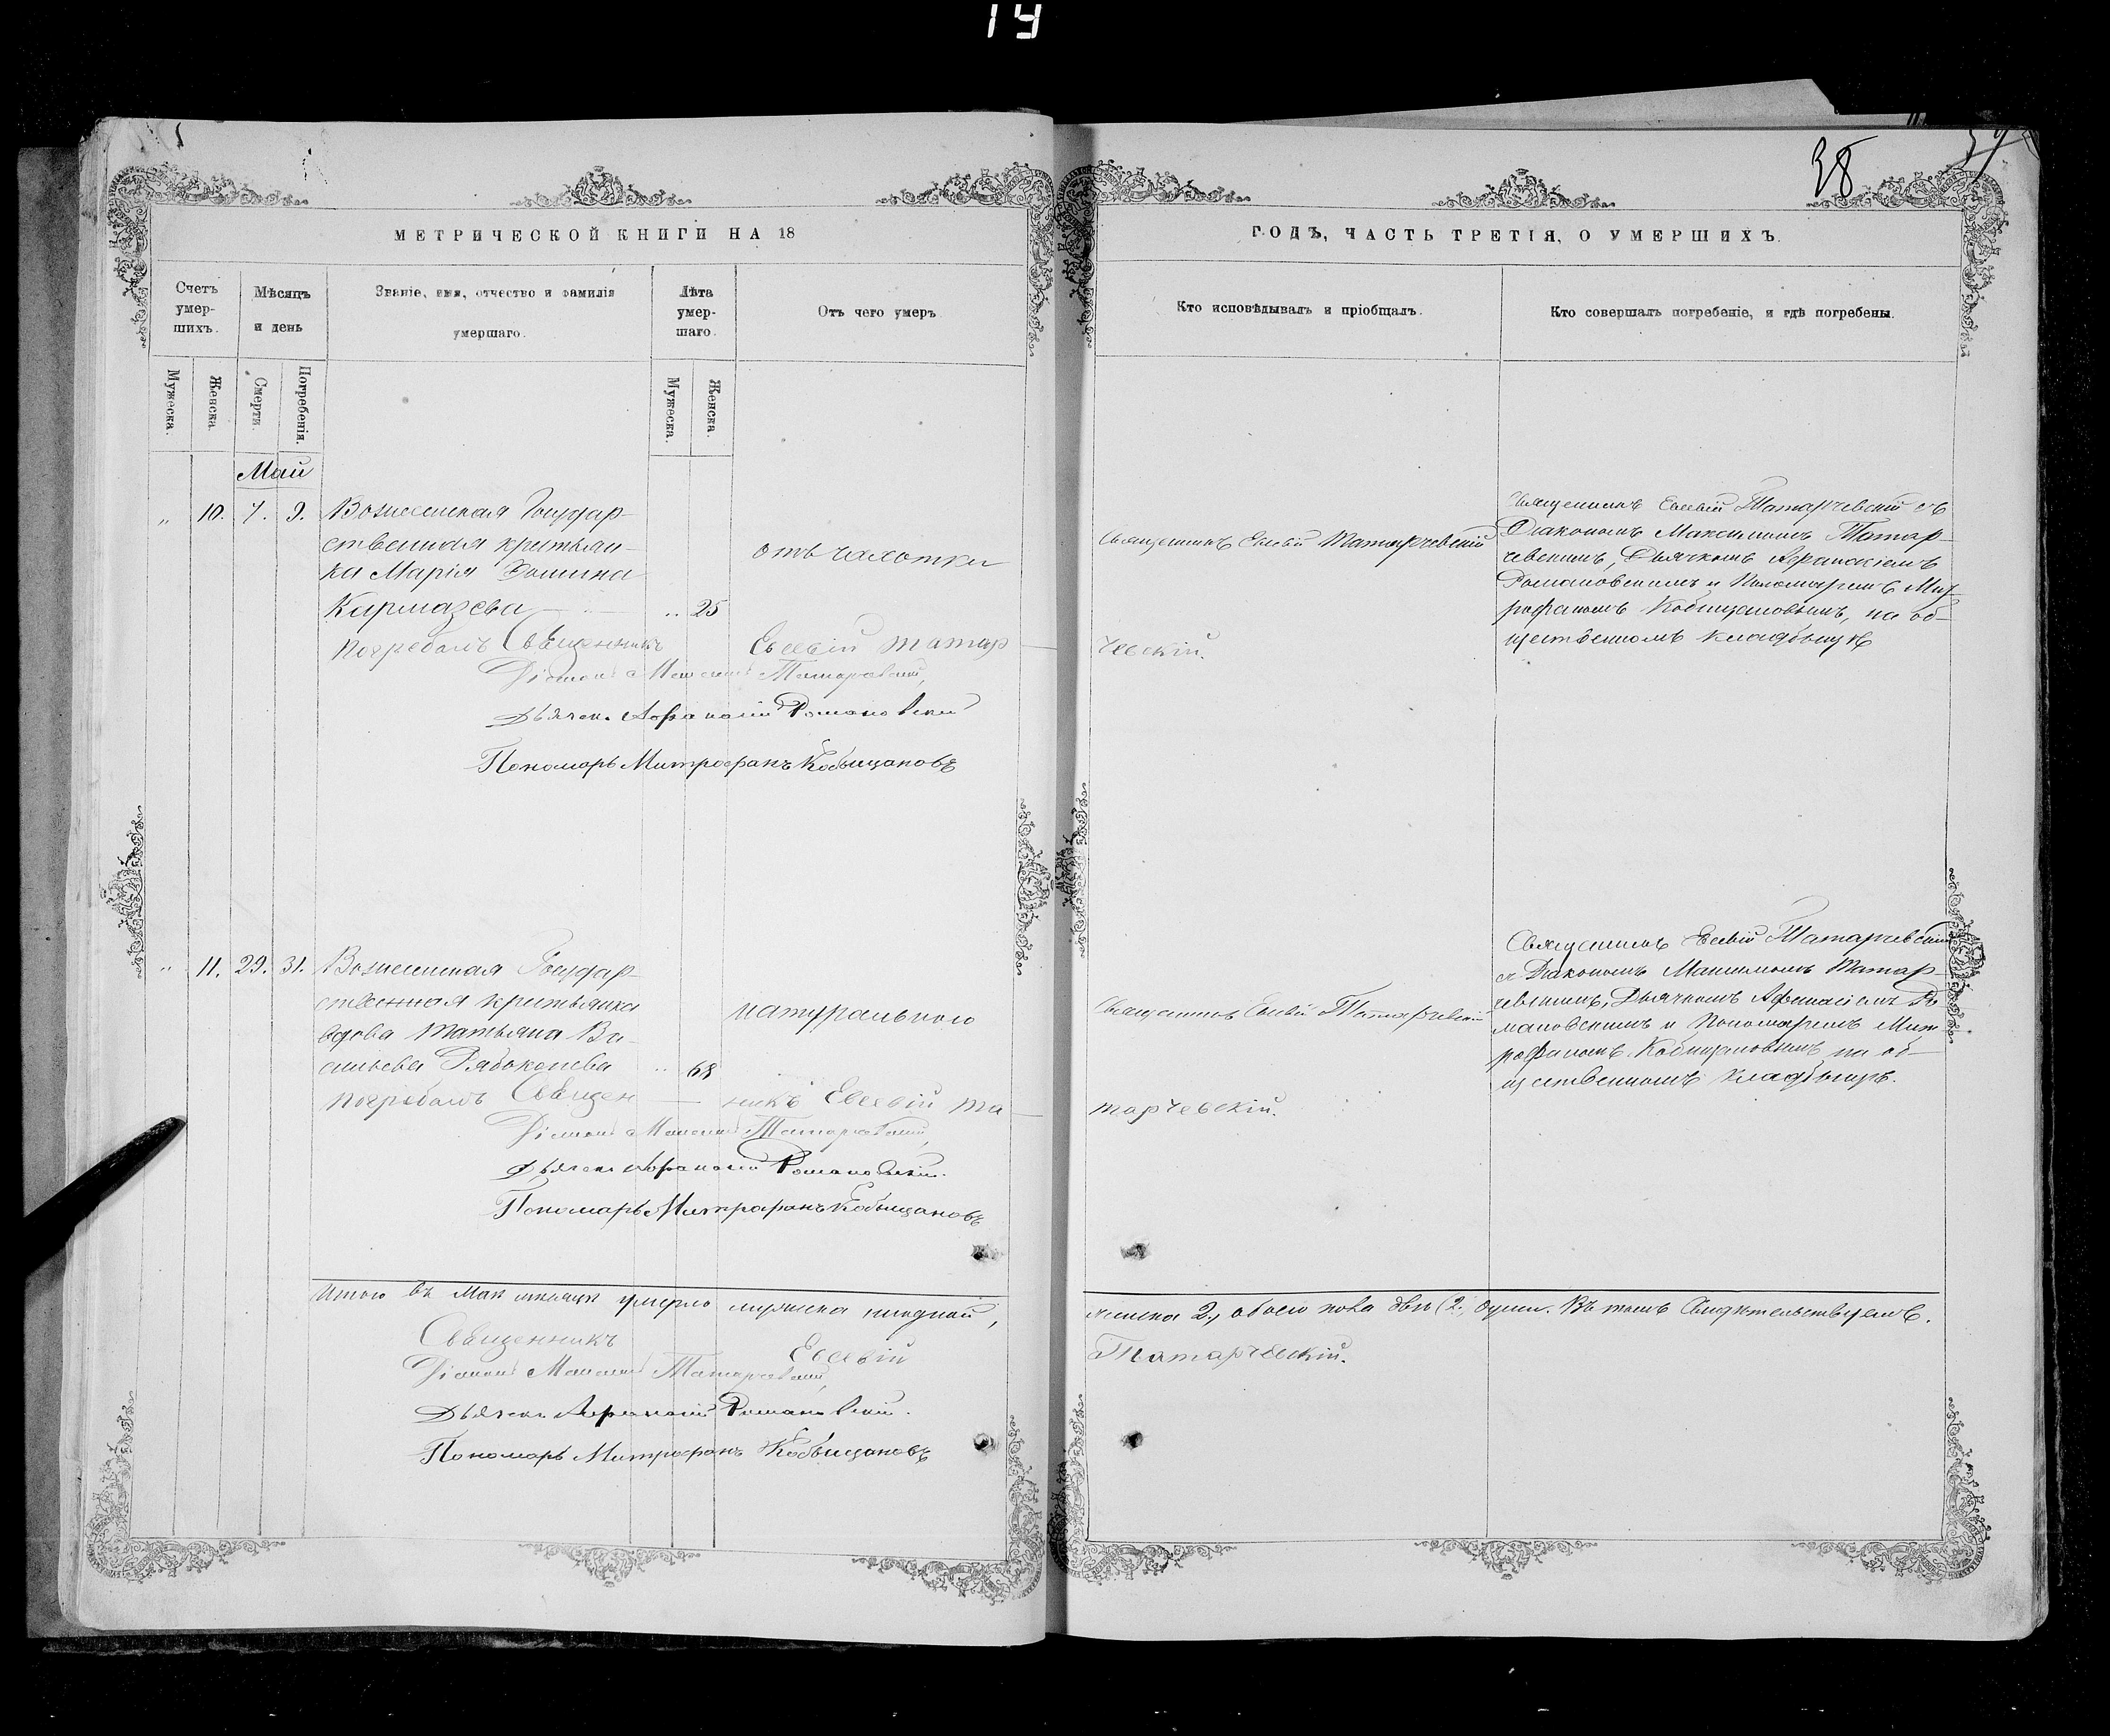 14
38
МЕТРИЧЕСКОЙ КНИГИ НА 18
ГОДЪ, ЧАСТЬ ТРЕТІЯ, О УМЕРШИХЪ.
Счетъ умер-
шихъ.
Мѣсяцъ
и день
Званіе, имя, отчество и фамилія
умершаго.
Лѣта
умер-
шаго.
Отъ чего умеръ
Кто исповѣдывалъ и пріобщалъ.
Кто совершалъ погребеніе, и гдѣ погребены.
Мужеска.
Женска.
Смерти.
Погребенія.
Мужеска.
Женска.
Май
„ 10. 7. 9. Вознесенская Государ-
ственная крестьян-
ка Марія Фомина
Кармазева „ 25
отъ чахотки
Священникъ Евсевій Татарчевскій
Священникъ Евсевій Татарчевскій съ
Діакономъ Максимомъ Татар-
чевскимъ, Дьячкомъ Афанасіемъ
Романовскимъ и Пономаремъ Мит-
рофаномъ Кобыщановымъ, на об-
щественномъ кладбищѣ
погребалъ Священникъ Евсевій Татар-
чевскій.
Діаконъ Максимъ Татарчевскій,
Дьячекъ Афанасій Романовскій
Пономарь Митрофанъ Кобыщановъ
„ 11. 29. 31. Вознесенская Государ-
ственная крестьянка
вдова Татьяна Ва-
сильева Рябоконева „ 68
натурально
Священникъ Евсевій Татарчевскій
Священникъ Евсевій Татарчевскій
съ Діакономъ Максимомъ Татар-
чевскимъ, Дьячкомъ Афанасіемъ Ро-
мановскимъ и Пономаремъ Мит-
рофаномъ Кобыщановымъ на об-
щественномъ кладбищѣ.
погребалъ Священ- никъ Евсевій Та-
тарчевскій.
Діаконъ Максимъ Татарчевскій,
Дьячекъ Афанасій Романовскій.
Пономарь Митрофанъ Кобыщановъ
Итого въ Маѣ мѣсяцѣ умерло мужеска ниодной, женска 2, обоего пола двѣ (2) души. Въ томъ Свидѣтельствуемъ.
Священникъ Евсевій Татарчевскій.
Діаконъ Максимъ Татарчевскій,
Дьячекъ Афанасій Романовскій.
Пономарь Митрофанъ Кобыщановъ